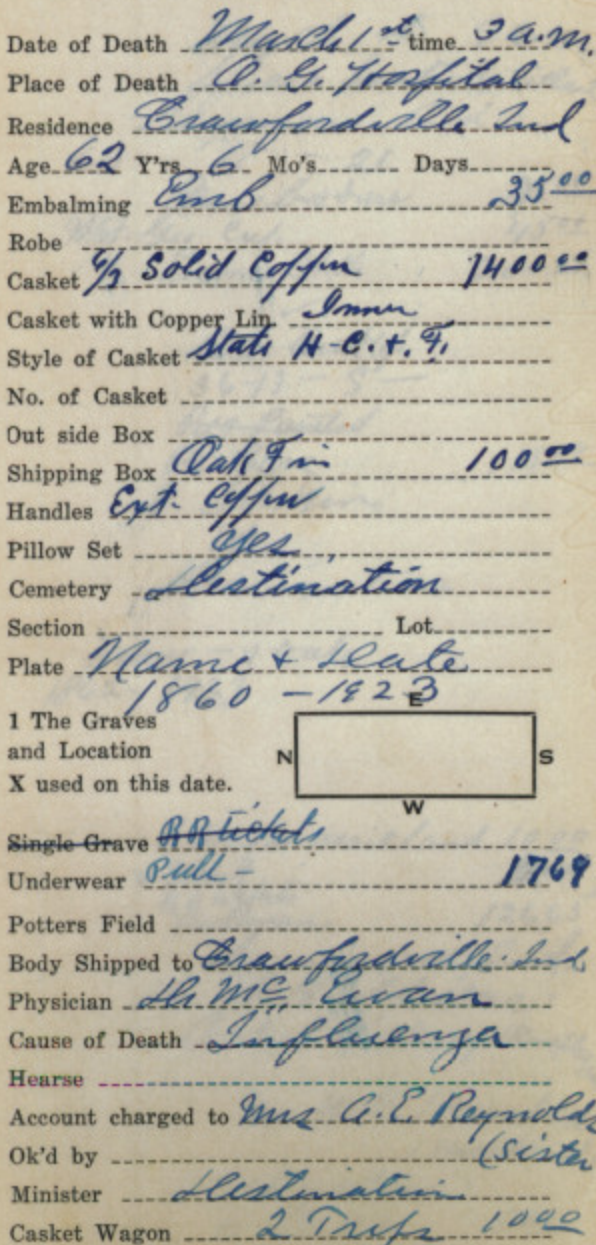 Date of Death March 1st time 3 a.m.
Place of Death O. G. Hospital
Residence Crawfordville Ind
Age 62 Y'rs 6 Mo's Days
Embalming Emb 35 00
Robe
Casket Solid Copper 1400 00
Casket with Copper Lin Inner
Style of Casket State H-C. + F.
No. of Casket
Out side Box
Shipping Box Oak Fin 100 00
Handles Ext. Copper
Pillow Set Yes
Cemetery Destination
Section Lot
Plate Name + Date
1860 - 1923
E
1 The Graves
and Location
X used on this date.
N S
W
Single Grave RR Tickets
Underwear Pull - 1769
Potters Field
Body Shipped to Crawfordville. Ind
Physician Dr Mc Ewan
Cause of Death Influenza
Hearse
Account charged to Mrs A. E. Reynolds
Ok'd by (Sister
Minister Destination
Casket Wagon 2 Trips 10 00